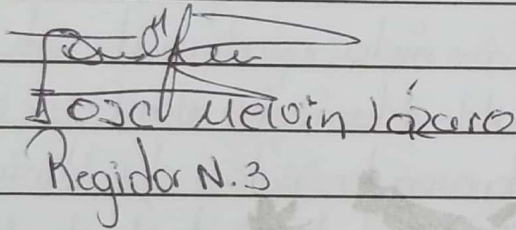 José Melvin Lázaro
Regidor N.3